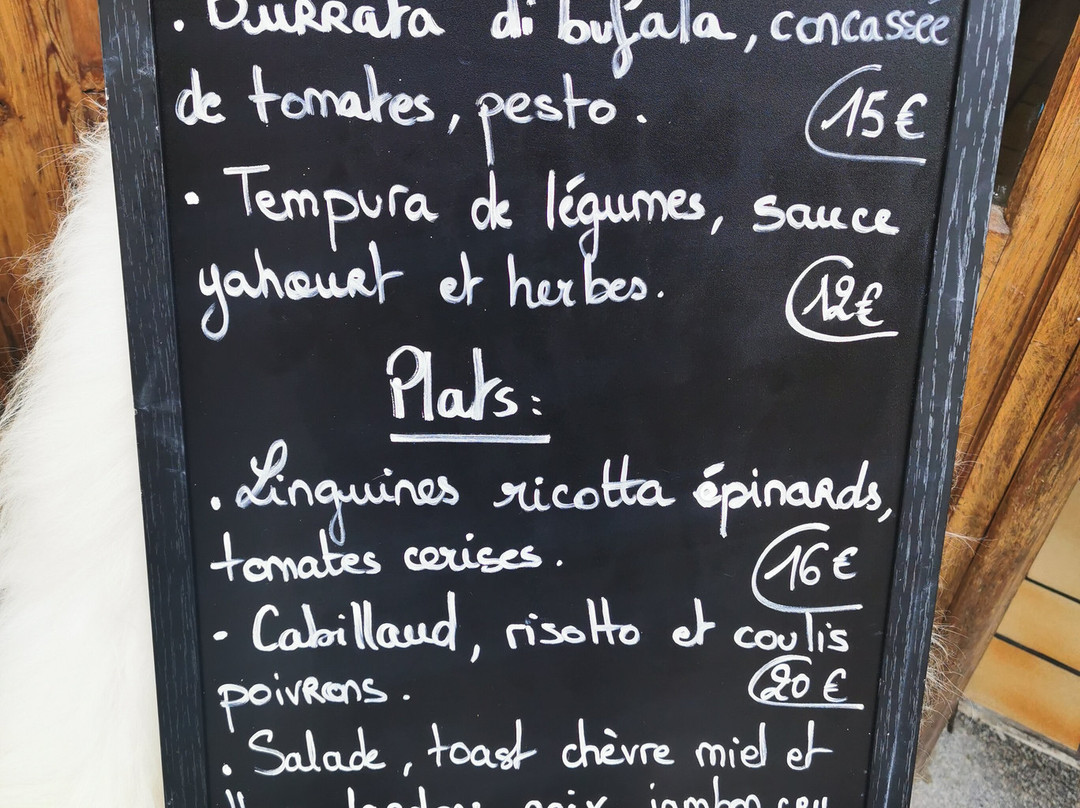 . Burrata di bufala, concassée
de tomates, pesto. 15€
. Tempura de légumes, sauce
yahourt et herbes. 12€
Plats:
. Linguines ricotta épinards,
tomates cerises. 16€
- Cabillaud, risotto et coulis
poivrons. 20€
. Salade, toast chèvre miel et
noix, jambon cru